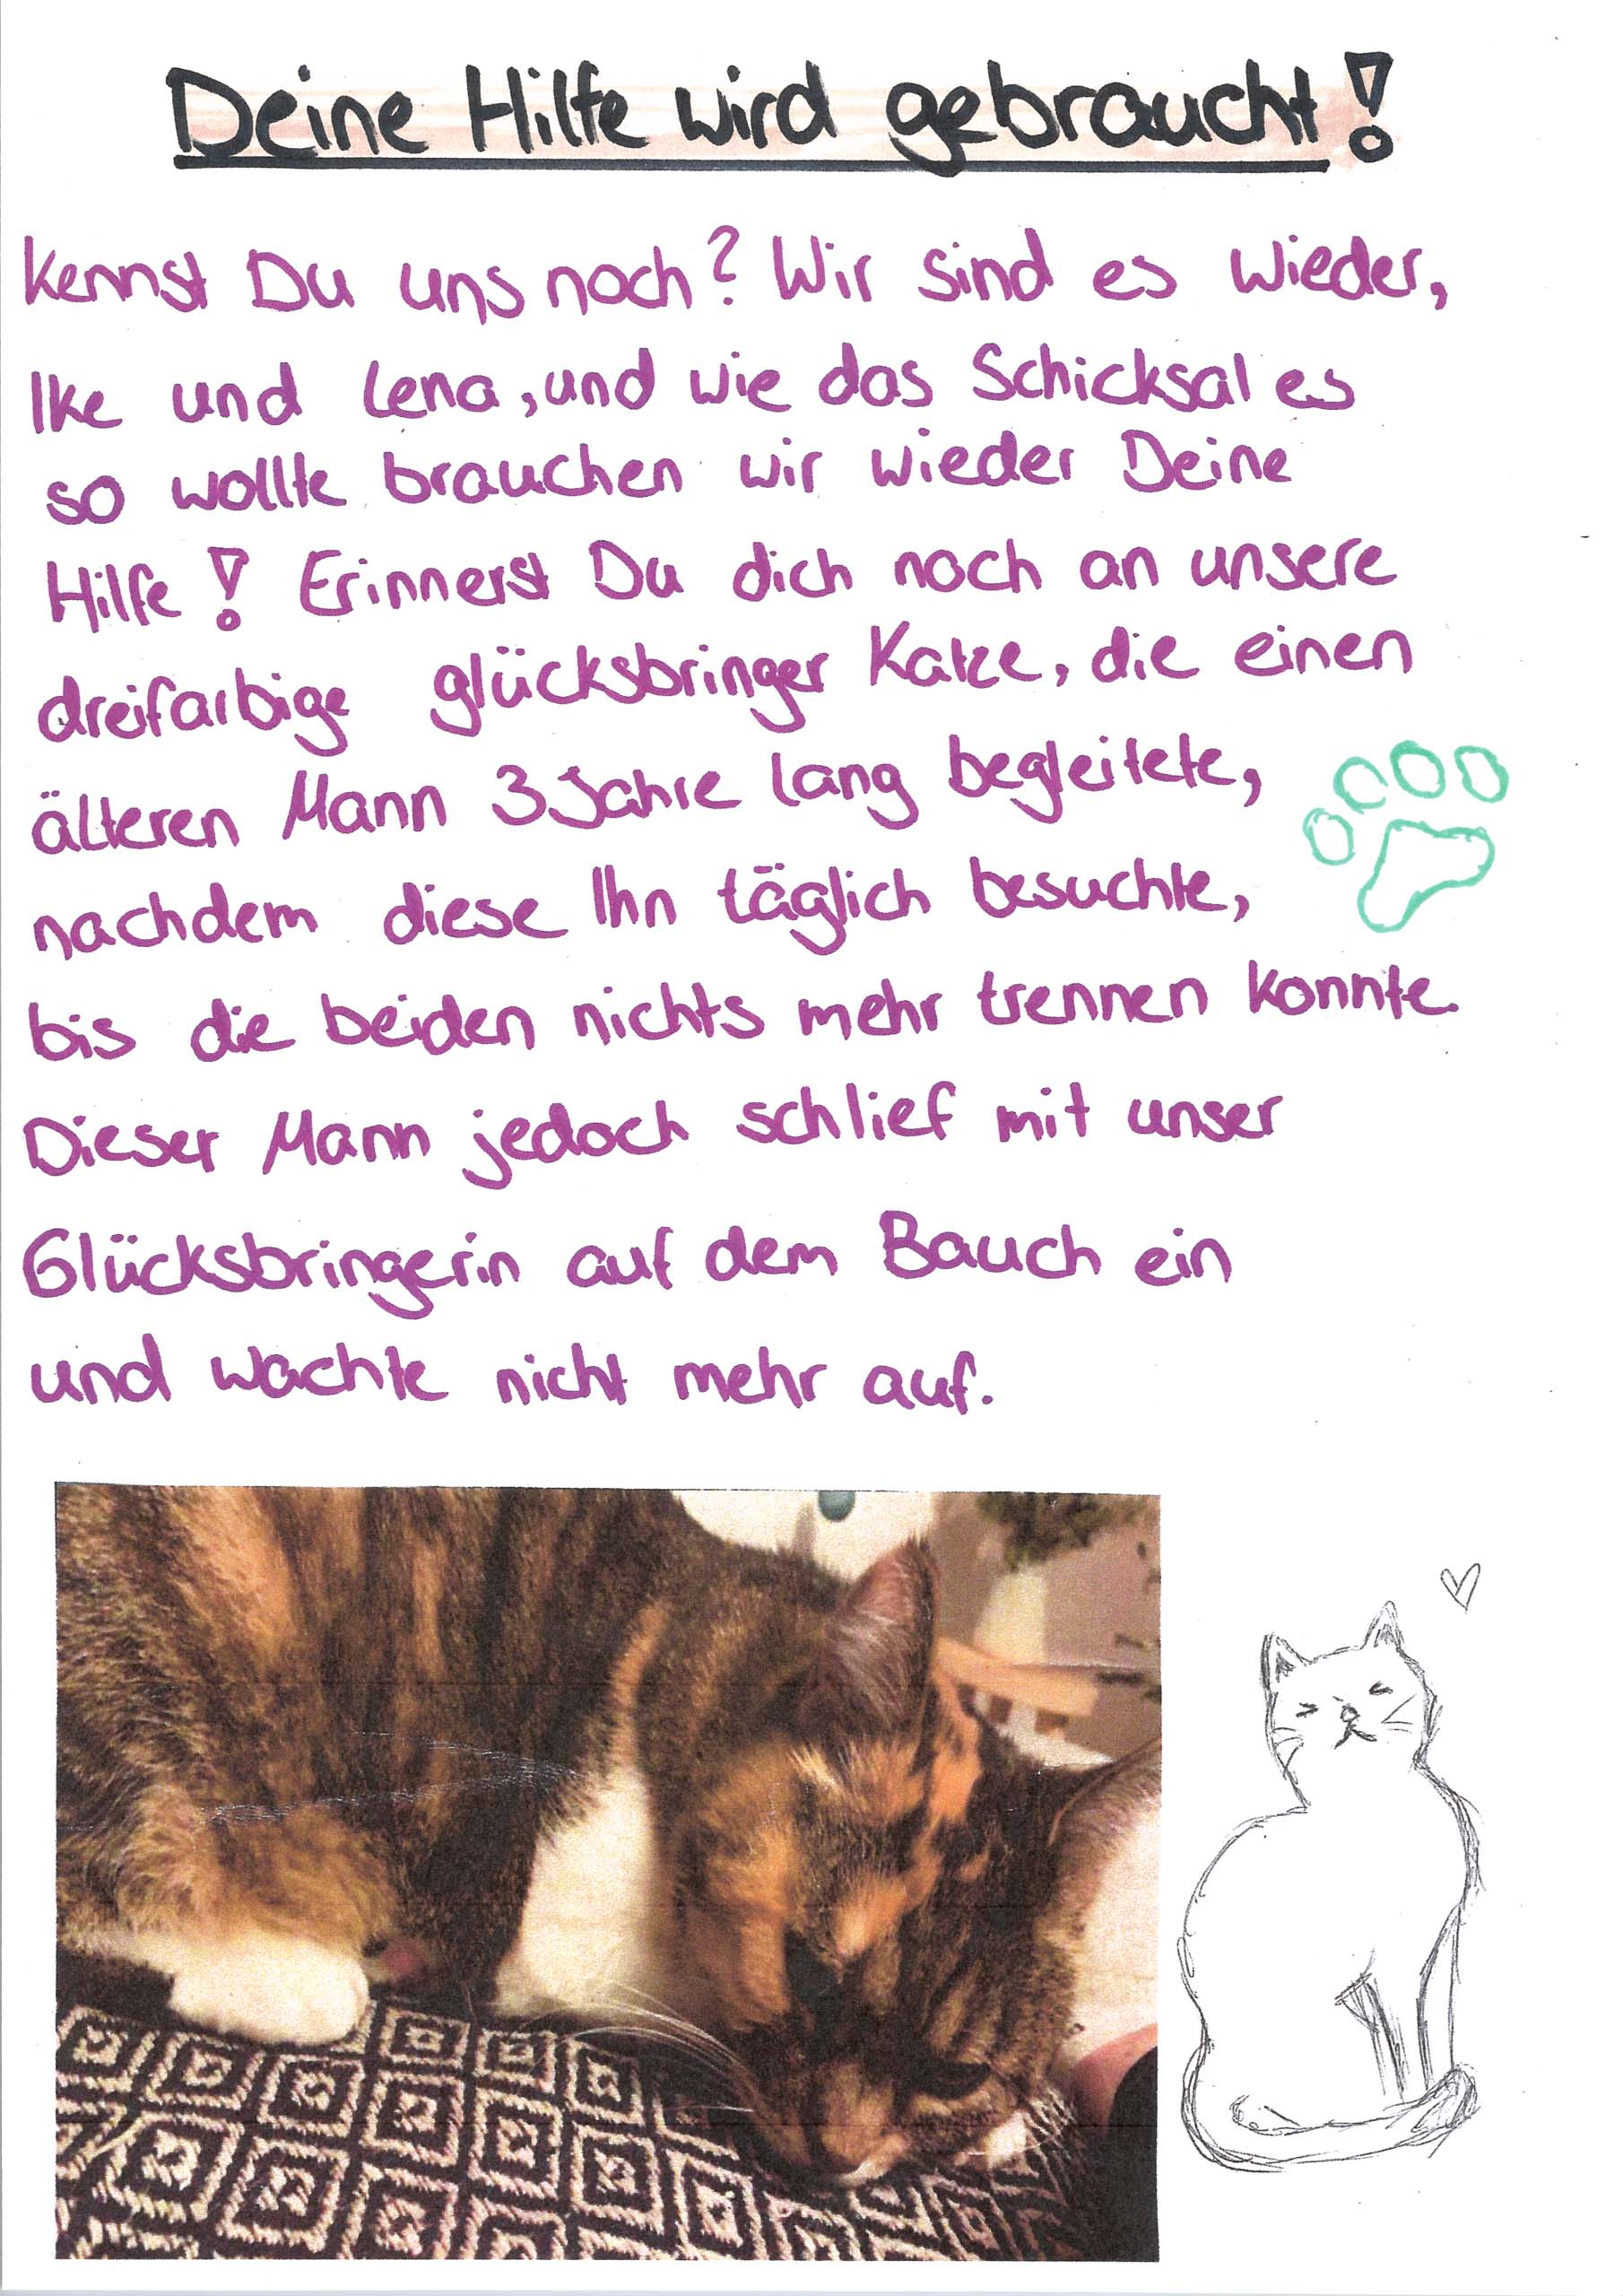 Deine Hilfe wird gebraucht!
Kennst Du uns noch? Wir sind es wieder,
Ike und Lena, und wie das Schicksal es
so wollte brauchen wir wieder Deine
Hilfe! Erinnerst Du dich noch an unsere
dreifarbige glücksbringer Katze, die einen
älteren Mann 3 Jahre lang begleitete,
nachdem diese Ihn täglich besuchte,
bis die beiden nichts mehr trennen konnte.
Dieser Mann jedoch schlief mit unser
Glücksbringerin auf dem Bauch ein
und wachte nicht mehr auf.